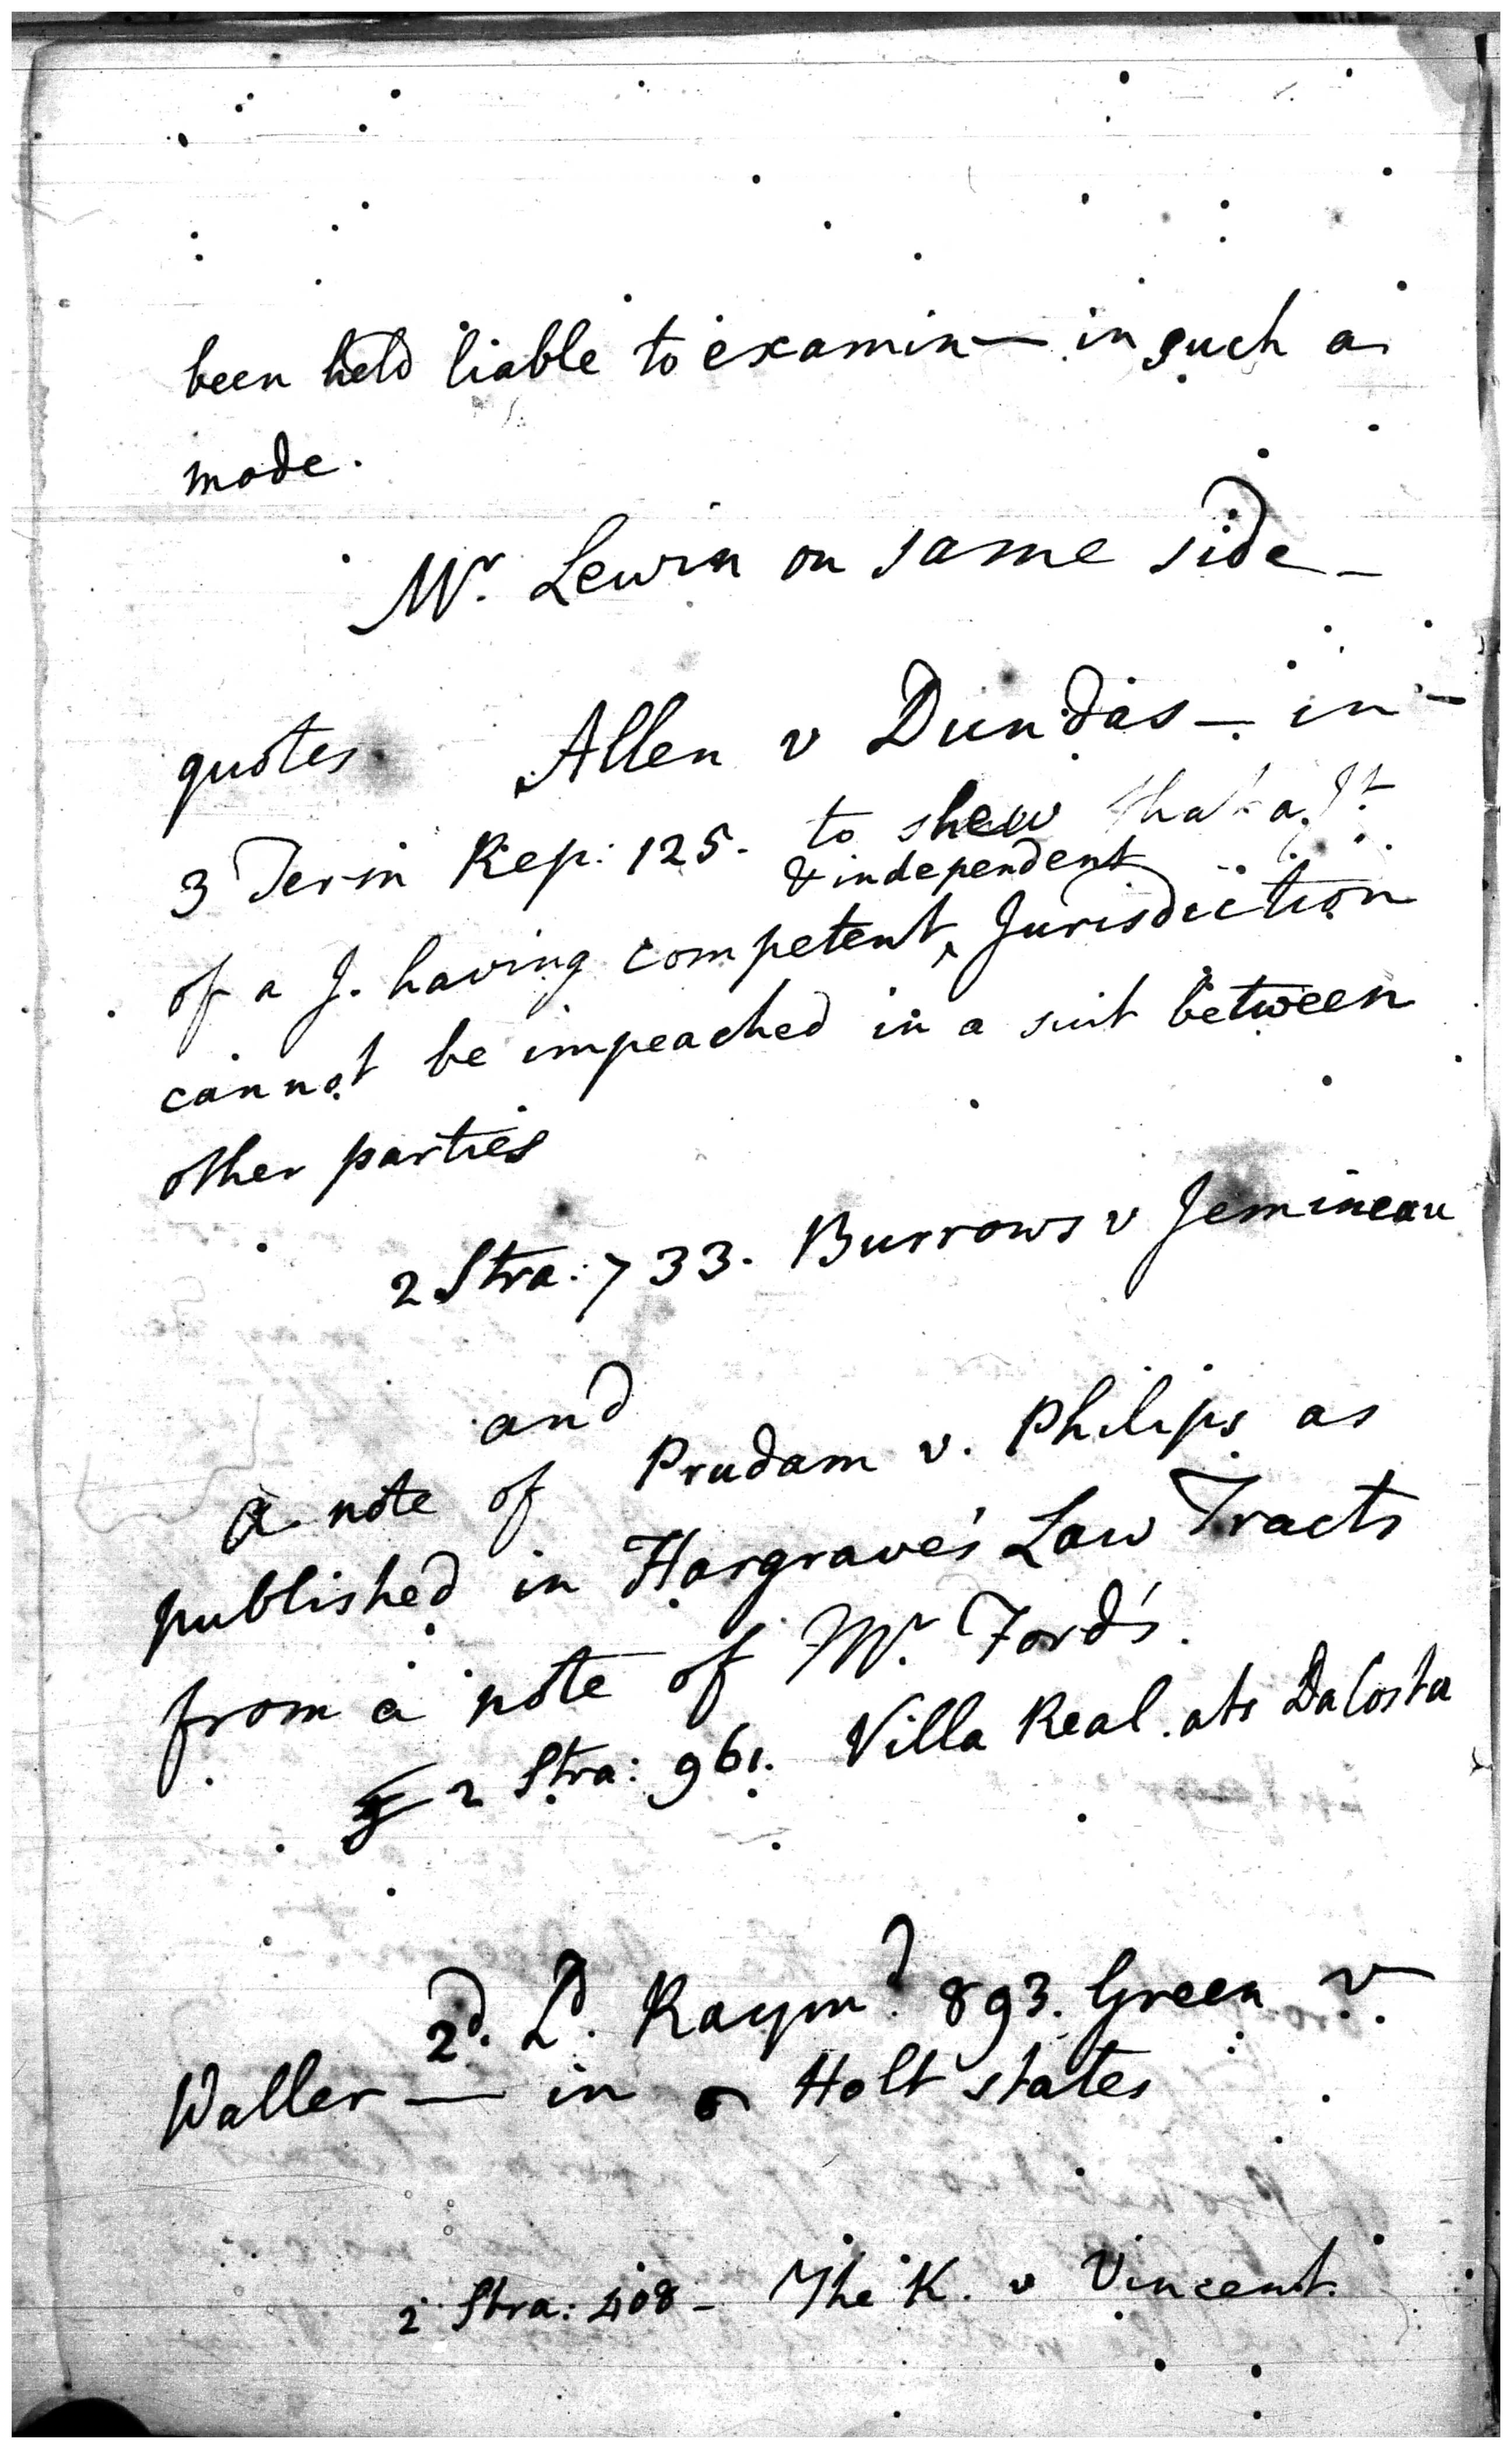 been held liable to examin— in such a
mode.
Mr. Lewin on same side—
quotes Allen v Dundas — in
3 Term Rep: 125. to shew that a Jt
& independent
of a J. having competent ‸ Jurisdiction
cannot be impeached in a suit between
other parties
2 Stra: 733. Burrows v Jemineau
and
a note of Prudam v. Philips as
published in Hargrave's Law Tracts
from a note of Mr. Ford's.
2 Stra: 961. Villa Real ats DaCosta
2d. Ld. Raymd. 893. Green v.
Waller — in Holt states
2 Stra: 408 - The K. v Vincent.